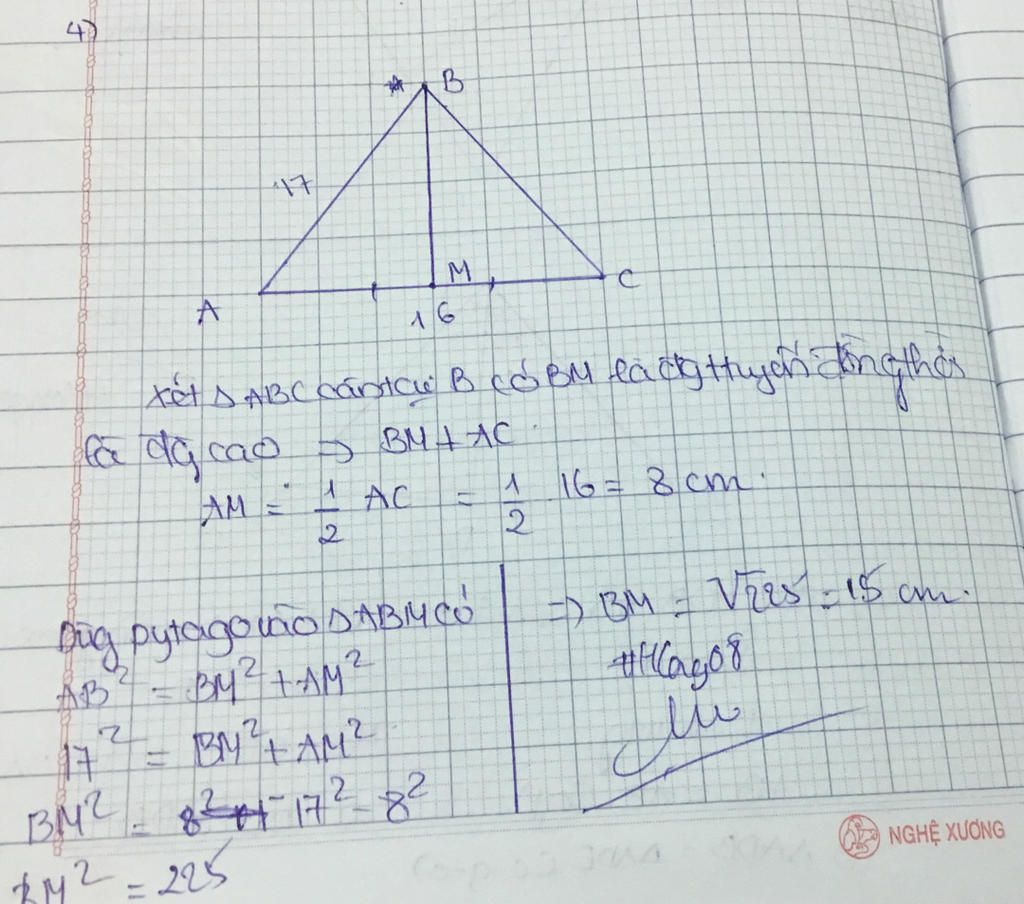 4)
B
17
M
A
C
16
xét Δ ABC cân tại B có BM là đg ttuyến đồng thời
là đg cao => BM ⊥ AC
AM = 1/2 AC = 1/2 16 = 8 cm.
Dùg pytago vào Δ ABM có
AB² = BM² + AM²
17² = BM² + AM²
BM² = 17² - 8²
BM² = 225
=> BM = √225 = 15 cm.
#HCag08
NGHỆ XƯƠNG